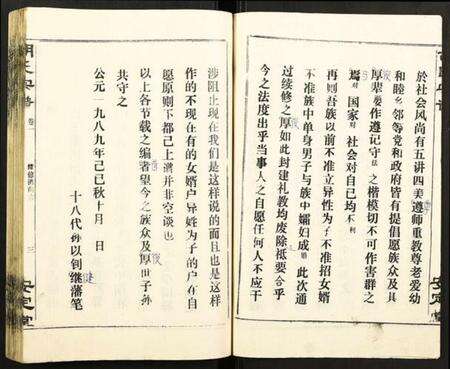 於社会风尚有五讲四美遵师重教尊老爱幼
和睦乡邻等党和政府皆有提倡愿族众及其
厚辈要作遵记守法之楷模切不可作害群之
对国家对社会对自己均不利
再则吾族以前不准立异性为子不准招女婿
不准族中单身男子与族中孀妇成婚此次通
过续修之厚如此封建礼教均废除祗要合乎
今之法度出乎当事人之自愿任何人不应于
涉阻止现在我们是这样说的而且也是这样
作的现在有的有的女婿户异姓为子的户在自
愿原则下都已上谱并非空谈也
以上各节载之编者望今之族众及厚世子孙
共守之
公元一九八九年己巳秋十月 日
十八代孙以钊继藩笔
胡氏四谱 卷一
三
安定堂
安定堂